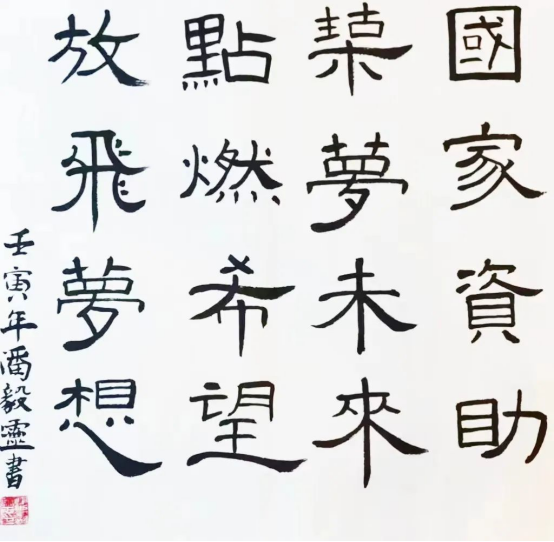 國家資助
築夢未來
點燃希望
放飛夢想
壬寅年潘毅靈書